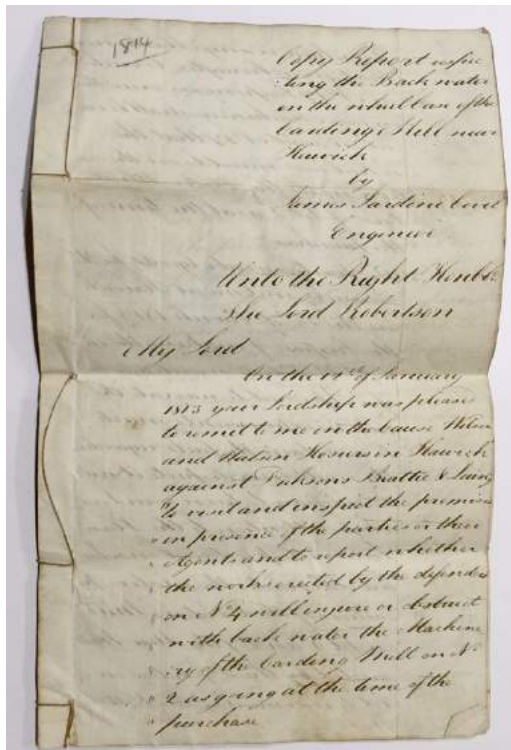 1814
Copy Report respec
ting the Back water
on the wheel case of the
Carding Mill near
Hawick
by
James Jardine Civil
Engineer
Unto the Right Honble.
The Lord Robertson
My Lord
On the 14th of January
1813 your Lordship was pleased
to remit to me in the cause Wilson
and Watson Hosiers in Hawick
against Dicksons Beattie & Laing
"to visit and inspect the premises
" in presence of the parties or their
" Agents and to report whether
" the works erected by the defenders
" on No. 4 will injure or obstruct
" with back water the Machine
" ry of the Carding Mill on No.
" 2 as going at the time of the
" purchase